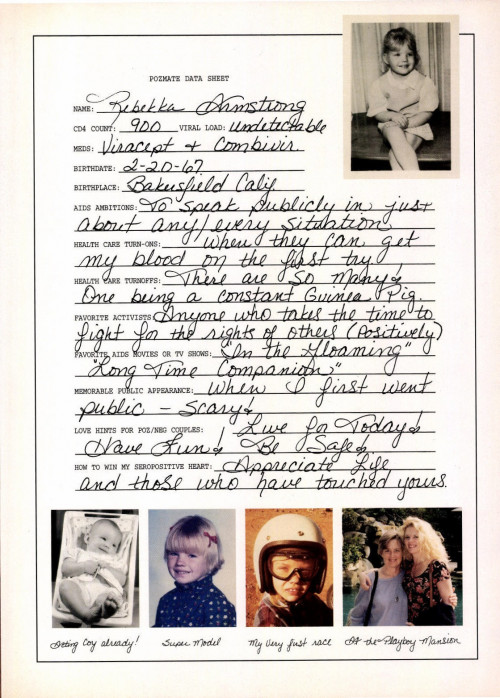 POZMATE DATA SHEET
NAME: Rebekka Armstrong
CD4 COUNT: 900 VIRAL LOAD: undetectable
MEDS: Viracept + Combivir.
BIRTHDATE: 2-20-67
BIRTHPLACE: Bakersfield Calif.
AIDS AMBITIONS: To speak publicly in just
about any/every situation
HEALTH CARE TURN-ONS: When they can get
my blood on the first try!
HEALTH CARE TURNOFFS: There are so many!
One being a constant Guinea Pig.
FAVORITE ACTIVISTS: Anyone who takes the time to
fight for the rights of others (Positively)
FAVORITE AIDS MOVIES OR TV SHOWS: "In the Gloaming"
"Long Time Companion"
MEMORABLE PUBLIC APPEARANCE: When I first went
public - Scary!
LOVE HINTS FOR POZ/NEG COUPLES: Live for Today!
Have Fun! Be Safe!
HOW TO WIN MY SEROPOSITIVE HEART: Appreciate Life
and those who have touched yours.
Acting Coy already!
Super Model
My very first race
At the Playboy Mansion